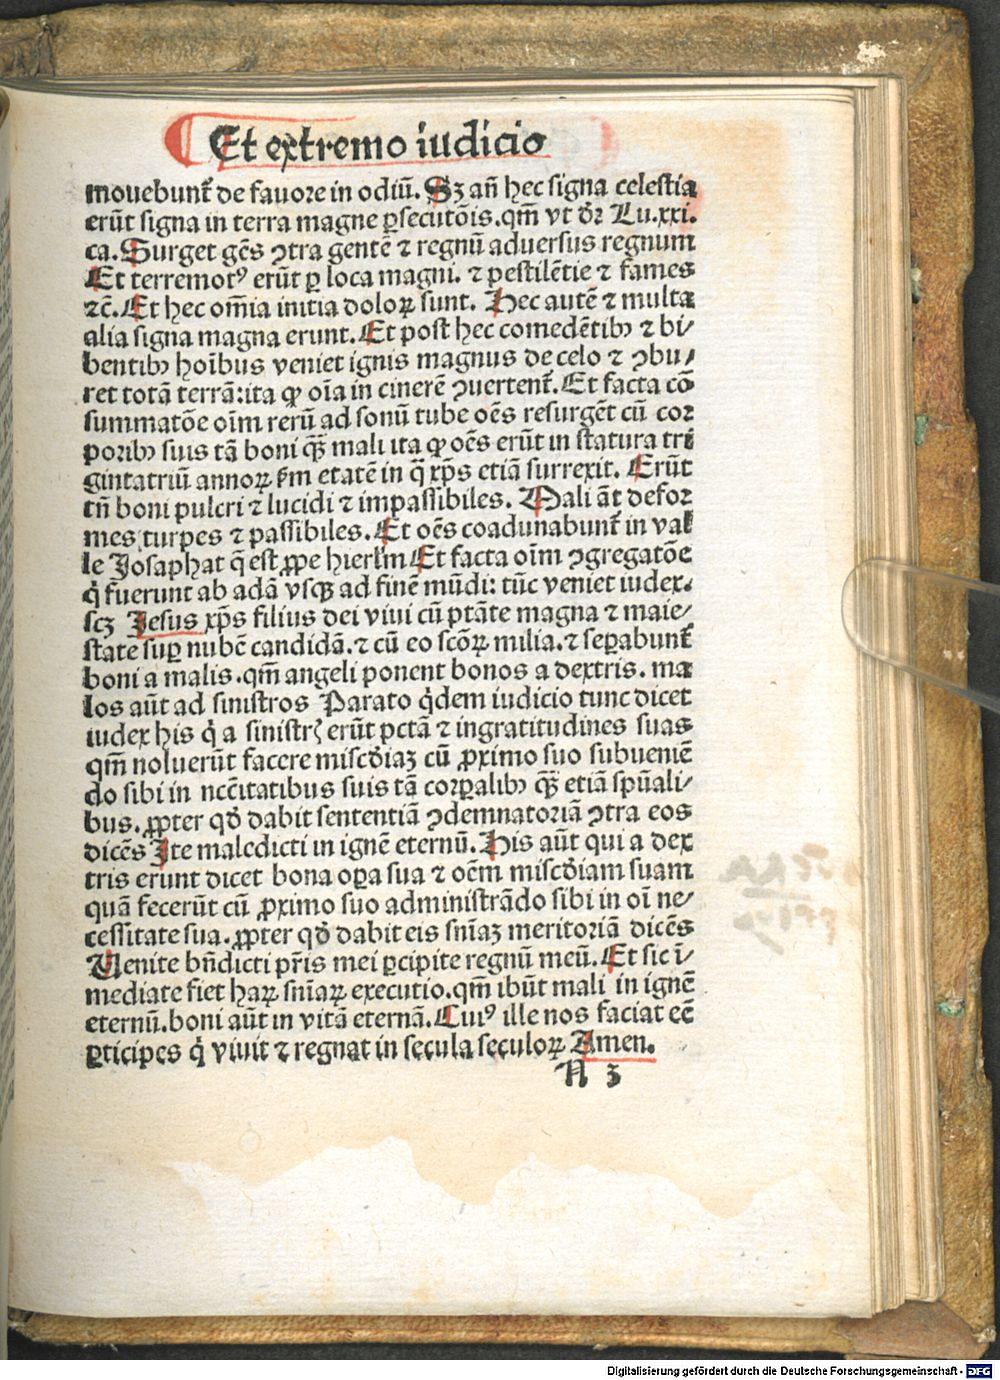 Et extremo iudicio
mouebunt᷑ de fauore in odiū. Sꝫ an̄ hec signa celestia
erūt signa in terra magne ꝑsecutōis.qm̄ vt dr̄ Lu.xxi.
ca.Surget gēs ꝯtra gentē ⁊ regnū aduersus regnum
Et terremotꝰ erūt ꝑ loca magni. ⁊ pestilētie ⁊ fames
⁊c̄.Et hec om̄ia initia doloꝝ sunt. Hec autē ⁊ multa
alia signa magna erunt.Et post hec comedētibꝫ ⁊ bi⸗
bentibꝫ hoībus veniet ignis magnus de celo ⁊ ꝯbu⸗
ret totā terrā:ita ꝙ oīa in cinerē ꝯuertent᷑.Et facta cō
summatōe oīm rerū ad sonū tube oēs resurgēt cū cor
poribꝫ suis tā boni qꝫ̄ mali ita ꝙ oēs erūt in statura tri
gintatriū annoꝝ ẜm etatē in q̄ xp̄s etiā surrexit. Erūt
tn̄ boni pulcri ⁊ lucidi ⁊ impassibiles. Mali āt defor
mes turpes ⁊ passibiles. Et oēs coadunabunt᷑ in val
le Josaphat q̄ est ꝓpe hierlm̄ Et facta oīm ꝯgregatōe
q̇ fuerunt ab adā vsqꝫ ad finē mūdi: tūc veniet iudex.
scꝫ Jesus xp̄s filius dei viui cū ptāte magna ⁊ maie⸗
state suꝑ nubē candidā.⁊ cū eo scōꝝ milia.⁊ seꝑabunt᷑
boni a malis.qm̄ angeli ponent bonos a dextris. ma
los aūt ad sinistros Parato q̇dem iudicio tunc dicet
iudex his q̇ a sinistrꝭ erūt pctā ⁊ ingratitudines suas
qm̄ noluerūt facere misc̄diaꝫ cū ꝓximo suo subueniē
do sibi in nccītatibus suis tā corꝑalibꝫ qꝫ̄ etiā spūali⸗
bus.ꝓpter qd̄ dabit sententiā ꝯdemnatoriā ꝯtra eos
dicēs Ite maledicti in ignē eternū.His aūt qui a dex
tris erunt dicet bona oꝑa sua ⁊ oēm misc̄diam suam
quā fecerūt cū ꝓximo suo administrādo sibi in oī ne⸗
cessitate sua.ꝓpter qd̄ dabit eis sn̄iaꝫ meritoriā dicēs
Uenite bn̄dicti pr̄is mei ꝑcipite regnū meū.Et sic ī⸗
mediate fiet haꝝ sn̄iaꝝ executio.qm̄ ibūt mali in ignē
eternū.boni aūt in vitā eternā.Cuiꝰ ille nos faciat eē
ꝑticipes q̇ viuit ⁊ regnat in secula seculoꝝ Amen.
A 3
Digitalisierung gefördert durch die Deutsche Forschungsgemeinschaft - DFG